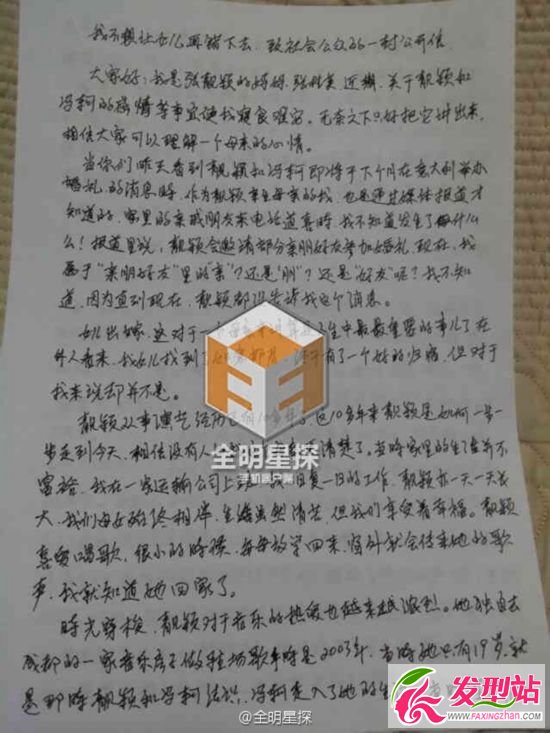 我不想让女儿再错下去,致社会公众的一封公开信
大家好:我是张靓颖的妈妈,张桂英。近期,关于靓颖和
冯轲的感情等事宜使我寝食难安。无奈之下只好把它讲出来,
相信大家可以理解一个母亲的心情。
当你们昨天看到靓颖和冯轲即将于下个月在意大利举办
婚礼的消息时,作为靓颖亲生母亲的我,也是通过媒体报道才
知道的,家里的亲戚朋友来电话道喜时,我不知道发生了什么
么!报道里说,靓颖会邀请部分亲朋好友参加婚礼,现在,我
属于“亲朋好友”里的“亲”?还是“朋”?还是“好友”呢?我不知
道,因为直到现在,靓颖都没告诉我这个消息。
女儿出嫁,这对于一个母亲生中最最重要的事儿了在
外人看来,我女儿找到了有了一个好的归宿,但对于
我来说却并不是。
靓颖从事演艺经历已有10多年了,这10多年来靓颖是如何一步
步走到今天,相信没有人比我更清楚了。当时家里的生活并不
富裕,我在一家运输公司上班,日复一日的工作,靓颖亦一天一天长
大,我们母女始终相伴,生活虽然清苦,但我们享受着幸福。靓颖
喜爱唱歌,很小的时候,每每放学回来,窗外就会传来她的歌
声,我就知道她回家了。
时光穿梭,靓颖对于音乐的热爱也越来越浓烈。她独自去
成都的一家音乐房子做驻场歌手时是2003年,当时她只有19岁,就
是那时靓颖和冯轲结识,冯轲走入了她的生
全明星探
手机客户端
@全明星探
发型站
WWW.FAXINGZHAN.COM